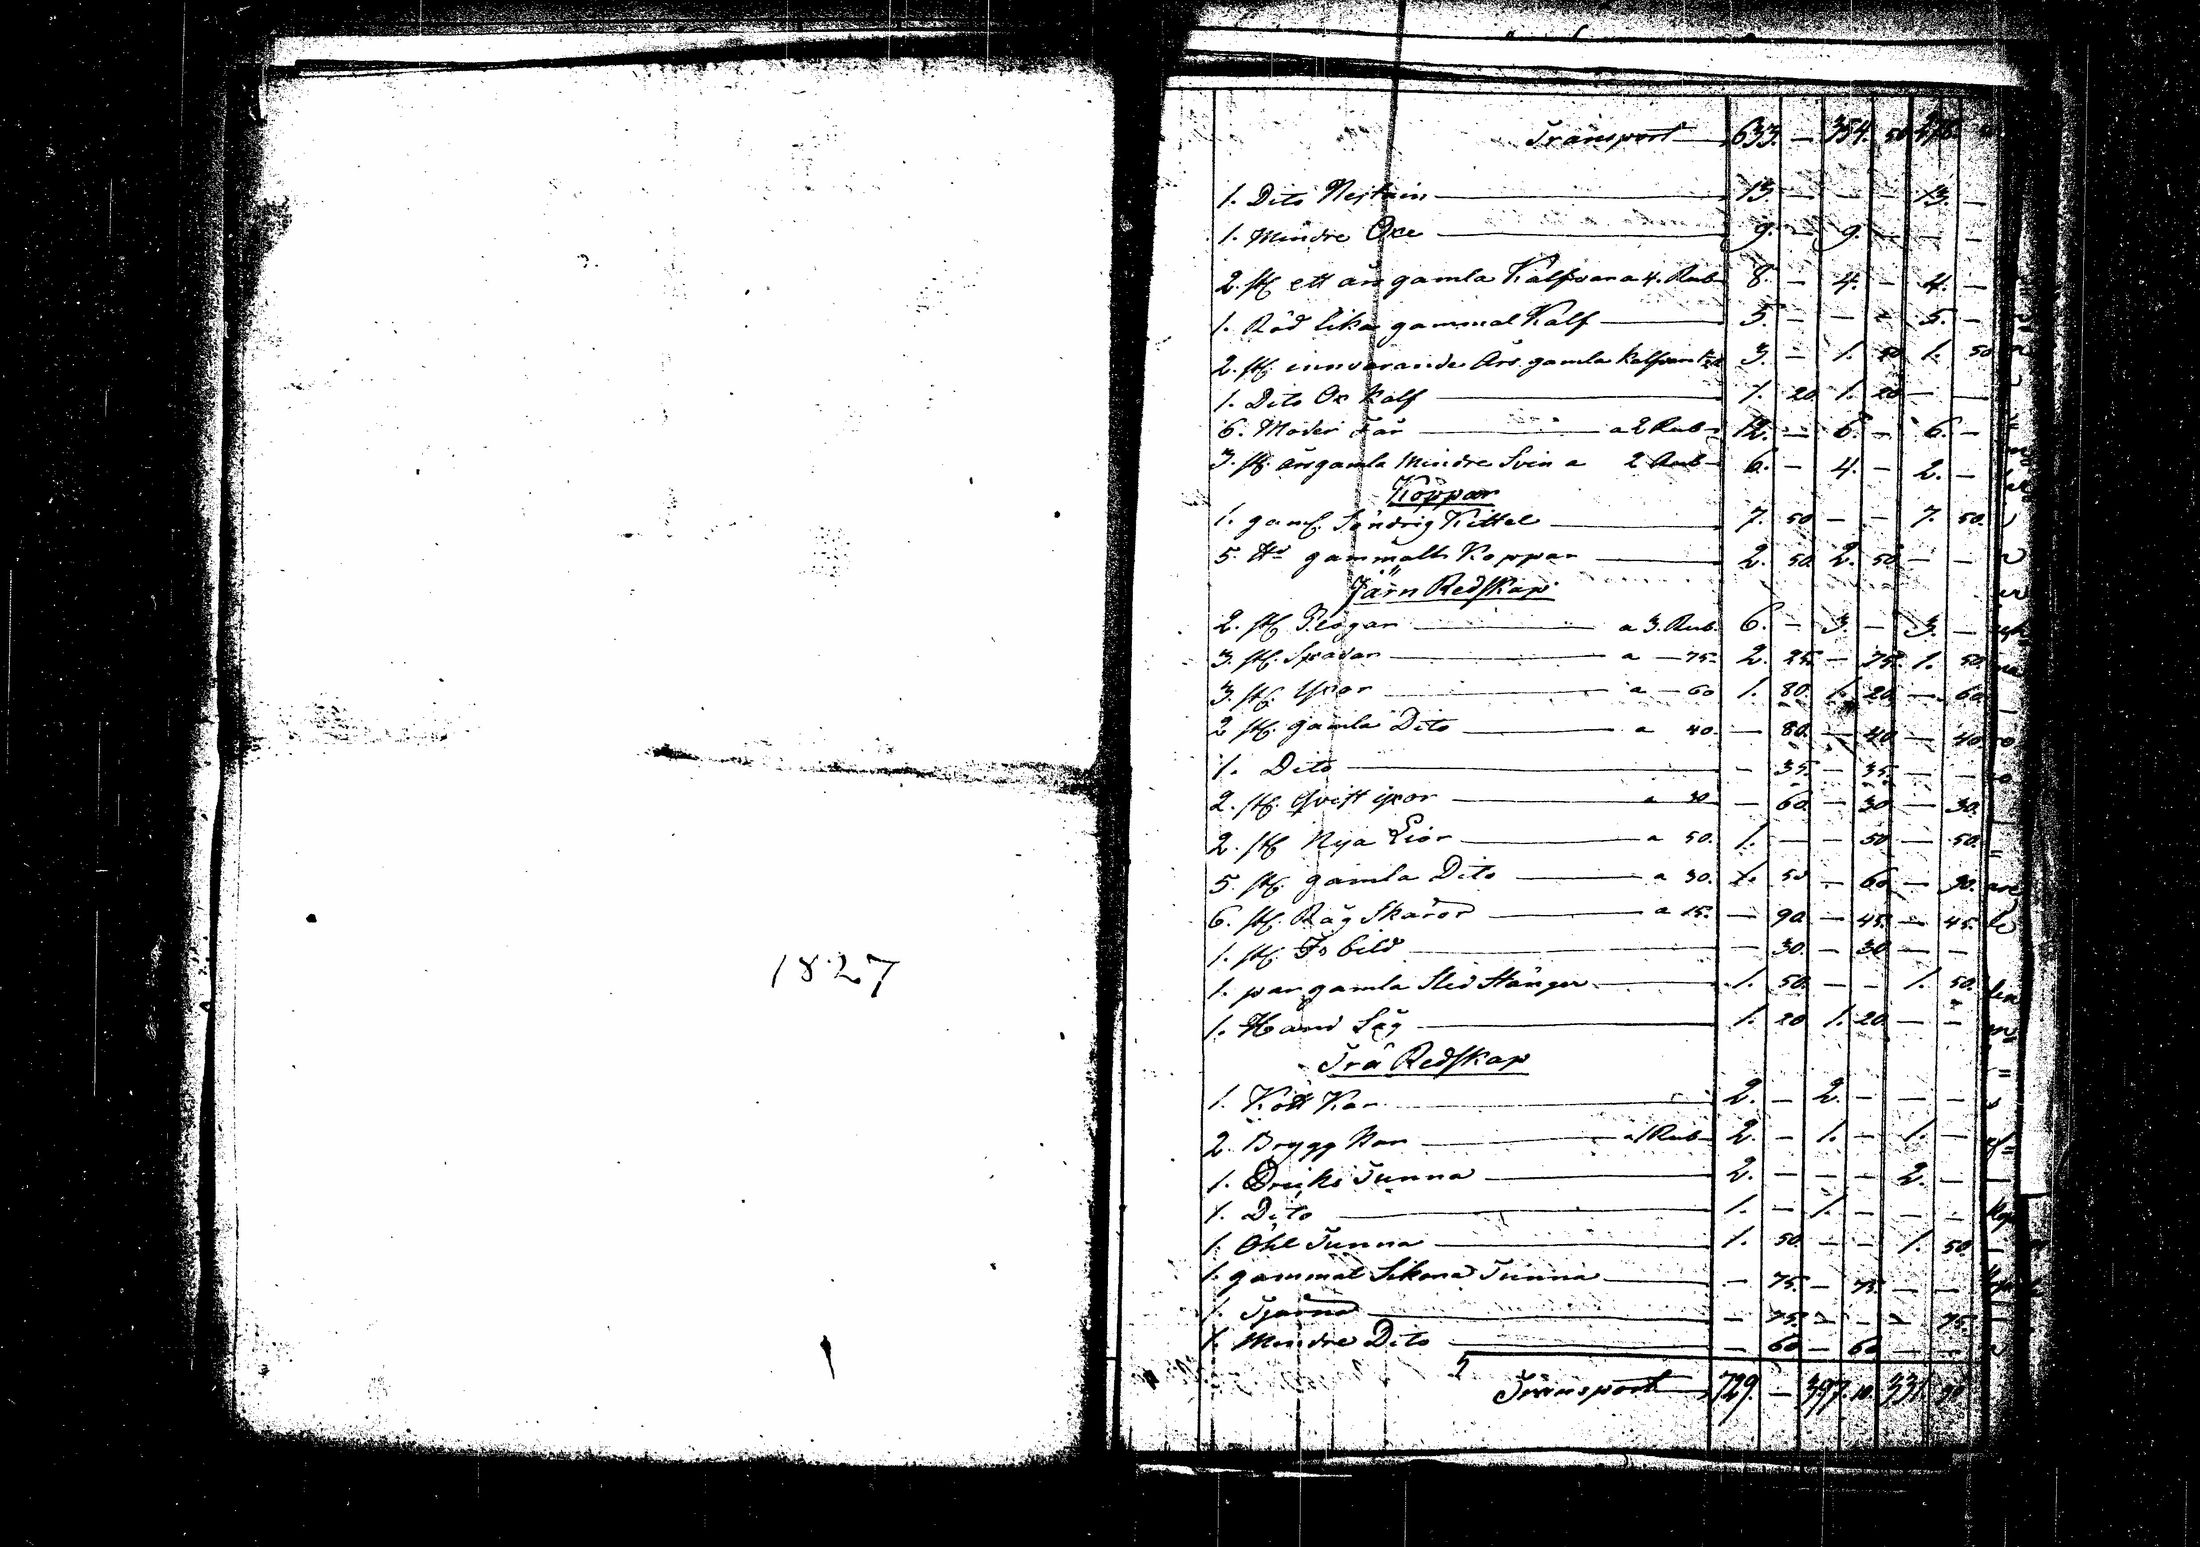 1827
Transport 633. — 354. 50
1. Dito 13 — — — 13. —
1. Mindre Oxe 9. — 9. — — —
2. st. ett års gamla Kalfvar a 4. Rub. 8. — 4. — 4. —
1. Röd lika gammal Kalf 5. — — — 5. —
2. st. innvarande Års gamla Kalfvar 3. — 1. 50 1. 50
1. Dito Ox Kalf 1. 20 1. 20 — —
6. Moder Får a 2 Rub. 12. — 6. — 6. —
3. st. årsgamla Mindre Svin a 2 Rub 6. — 4. — 2. —
Koppar
1. gaml. Söndrig Kittel 7. 50 — — 7. 50.
5. gammalt Koppar 2. 50 2. 50 — —
Järn Redskap
2. st. Plogar a 3. Rub. 6. — 3. — 3. —
3. st. Spadar a — 75. 2. 25. — 75. 1. 50.
3. st. Yxor a — 60 1. 80. 1. 20 — 60
2 st. gamla Dito a 40. — 80. — 40 — 40.
1. Dito — 35. — 35. — —
2. st. Qvist yxor a 30 — 60. — 30 — 30.
2. st. Nya Lior a 50. 1. — — 50 — 50.
5. st. gamla Dito a 30. 1. 50 — 60 — 90.
6. st. Råg Skäror a 15. — 90. — 45. — 45.
1. st. Is bild — 30. — 30 — —
1. par gamla Sled Stänger 1. 50. — — 1. 50.
1. Hand Såg 1. 20 1. 20 — —
Trä Redskap
1. Kött Kar 2. — 2. — — —
2. Brygg Kar a 1 Rub 2. — 1. — 1. —
1. Dricks Tunna 2. — — — 2. —
1. Dito 1. — 1. — — —
1. Öhl Tunna 1. 50. — — 1. 50.
1. gammal Tunna — 75. — 75. — —
1. Tjärna — 75. — — — 75.
1. Mindre Dito — 60 — 60 — —
Transport 729. — 397. 10. 331. 90